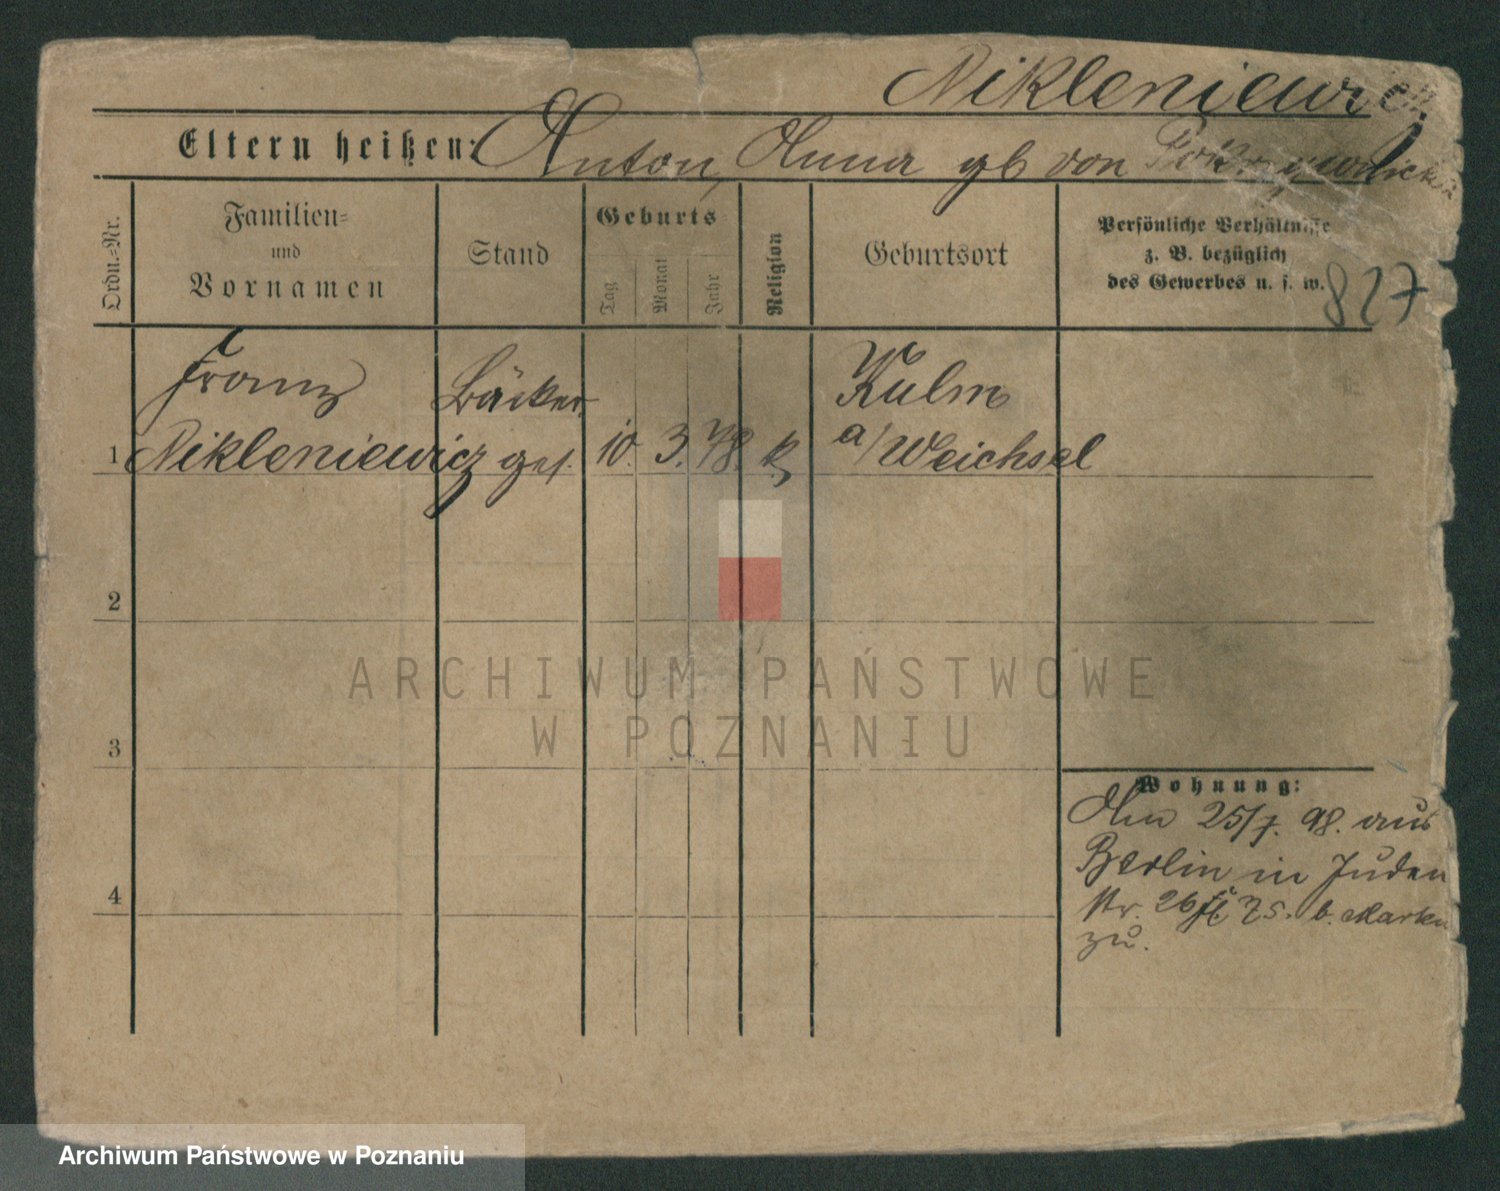 Nikleniewicz
Eltern heißen: Anton, Anna gb von
Ordn.=Nr.
Familien=
und
Vornamen
Stand
Geburts
Tag
Monat
Jahr
Religion
Geburtsort
Persönliche Verhältnisse
z. B. bezüglich
des Gewerbes u. s. w.
827
Franz Bäcker Kulm
1 Nikleniewicz 10. 3. 78. k a/Weichsel
2
3
4
ARCHIWUM PAŃSTWOWE
W POZNANIU
Wohnung:
Am 25/7. 98. aus
Berlin in Juden
str. 26 b.
zu.
Archiwum Państwowe w Poznaniu